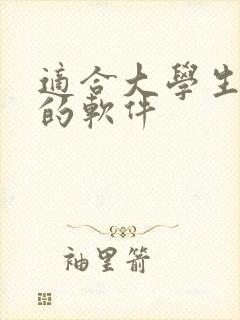 適合大學生
的軟件
袖里箭